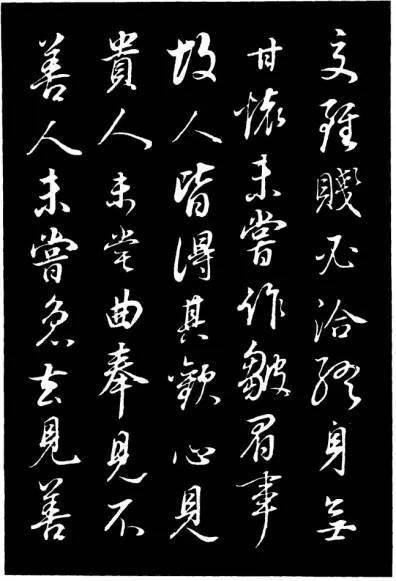 交雖賤必洽終身無
甘壞未嘗作皺眉事
故人皆得其歡心見
貴人未嘗曲奉見不
善人未嘗急去見善